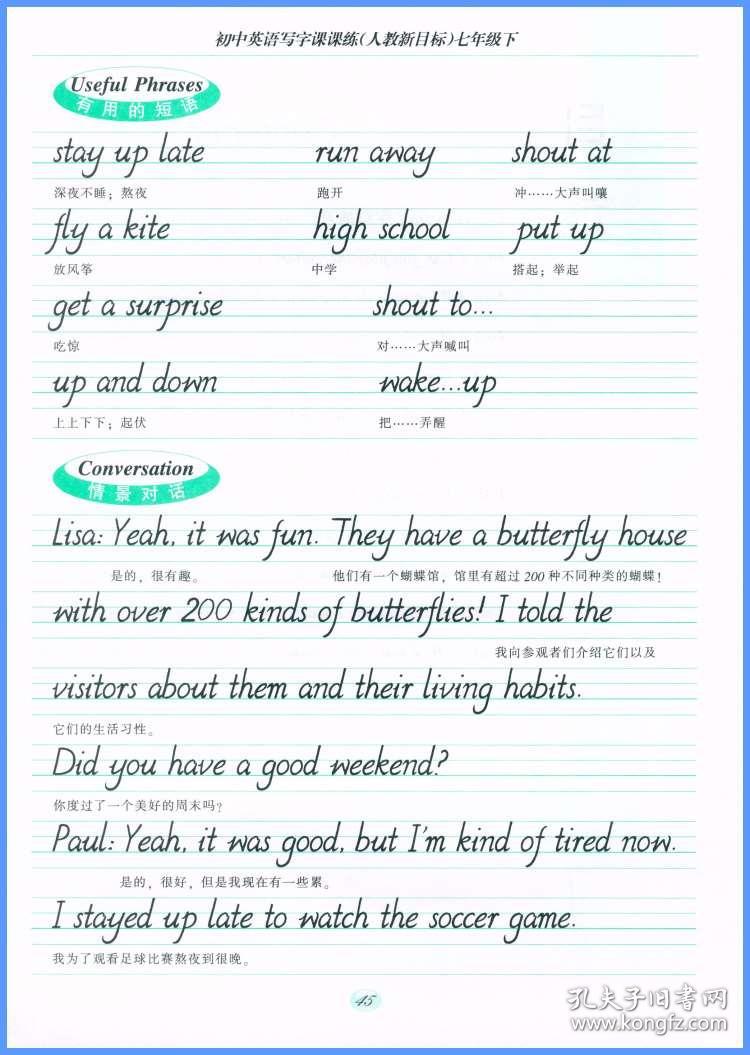 初中英语写字课课练(人教新目标)七年级下
Useful Phrases
有用的短语
stay up late run away shout at
深夜不睡；熬夜 跑开 冲……大声叫嚷
fly a kite high school put up
放风筝 中学 搭起；举起
get a surprise shout to...
吃惊 对……大声喊叫
up and down wake...up
上上下下；起伏 把……弄醒
Conversation
情景对话
Lisa: Yeah, it was fun. They have a butterfly house
是的，很有趣。 他们有一个蝴蝶馆，馆里有超过200种不同种类的蝴蝶！
with over 200 kinds of butterflies! I told the
我向参观者们介绍它们以及
visitors about them and their living habits.
它们的生活习性。
Did you have a good weekend?
你度过了一个美好的周末吗？
Paul: Yeah, it was good, but I'm kind of tired now.
是的，很好，但是我现在有一些累。
I stayed up late to watch the soccer game.
我为了观看足球比赛熬夜到很晚。
45
孔夫子旧书网
www.kongfz.com